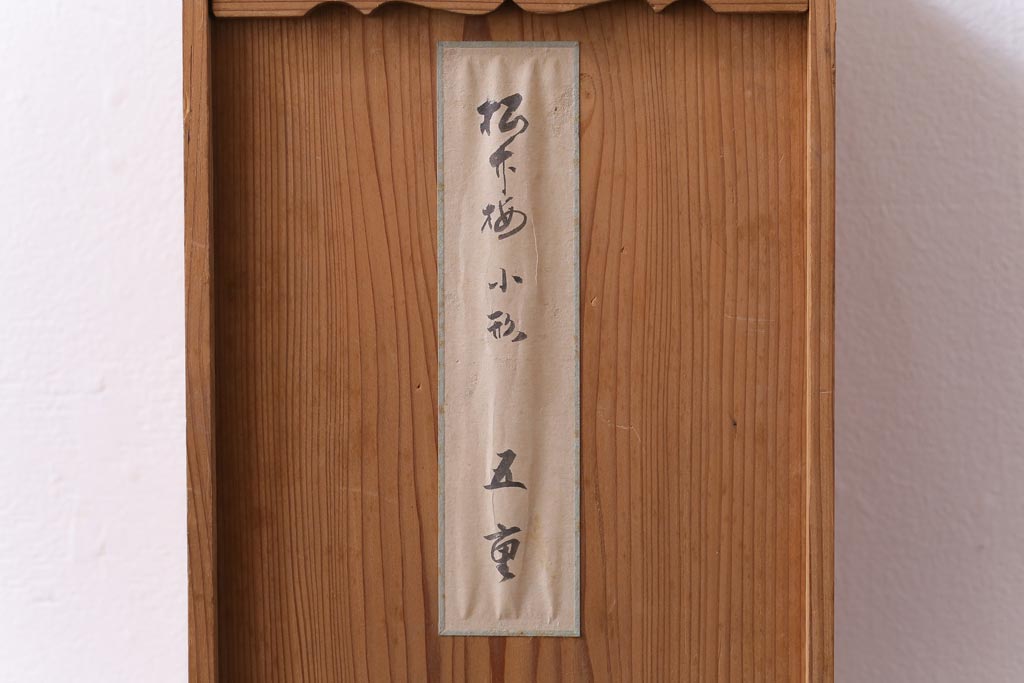 松竹梅 小形 五重